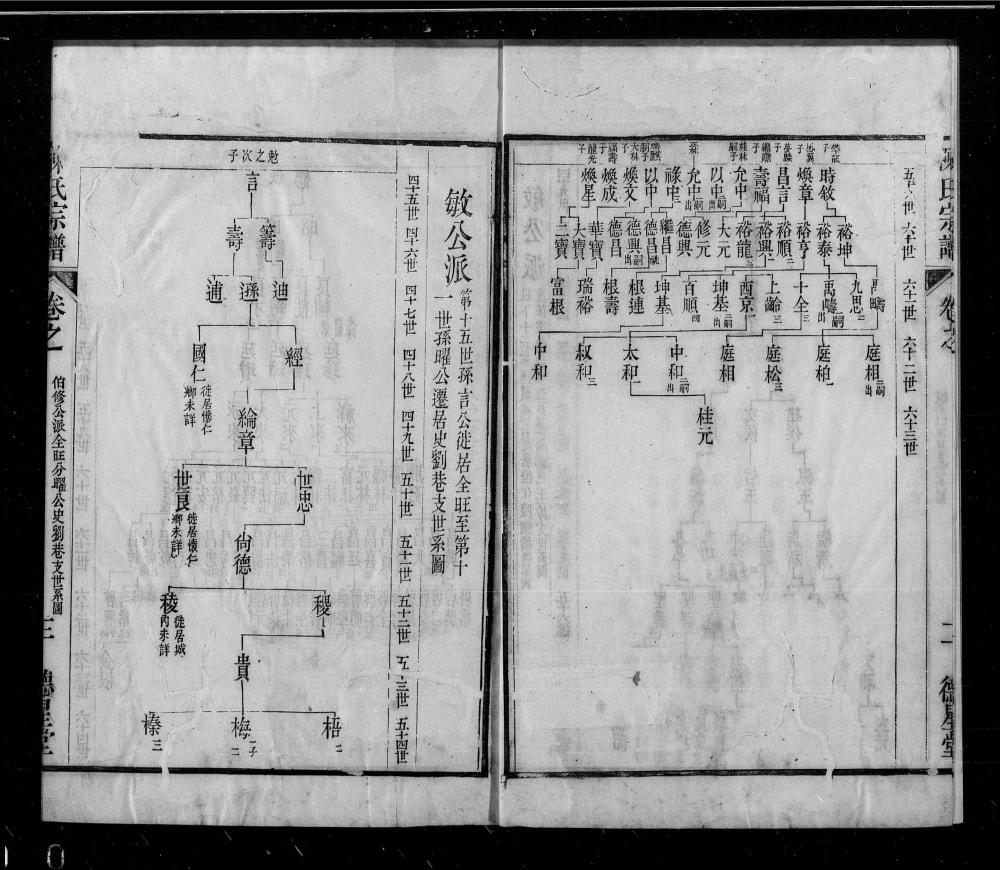 氏宗譜
卷之
二
德星堂
六十世
六十一世
六十二世
六十三世
時敘
煥章
昌言
壽福
允中
以中
允中嗣出
祿中
以中
煥文
煥成
煥星
裕坤
裕泰
裕亨
裕順二
裕興
裕龍
大元
修元
德興
繼昌
德昌
德興嗣出
德昌
華寶
大寶
二寶
禹疇
九思二
禹疇嗣出
十全三
上齡三
西京一
坤基二嗣出
百順四
坤基
根連
根壽
瑞裕
富根
庭相二嗣出
庭柏二
庭松三
庭相
中和二嗣出
太和一
叔和三
中和
桂元
敏公派
第十五世孫言公徙居全旺至第十
一世孫曜公遷居史劉巷支世系圖
四十五世
四十六世
四十七世
四十八世
四十九世
五十世
五十一世
五十二世
五十三世
五十四世
勉之次子
言
籌
壽
迪
遜
逋
經
國仁
徙居懷仁
鄉未詳
綸章
世忠
世良
徙居懷仁
鄉未詳
尙德
稷
稜
徙居城
內未詳
貴
梧二
梅二子
榛三
氏宗譜
卷之一
伯修公派全旺分曜公史劉巷支世系圖
三
德星堂